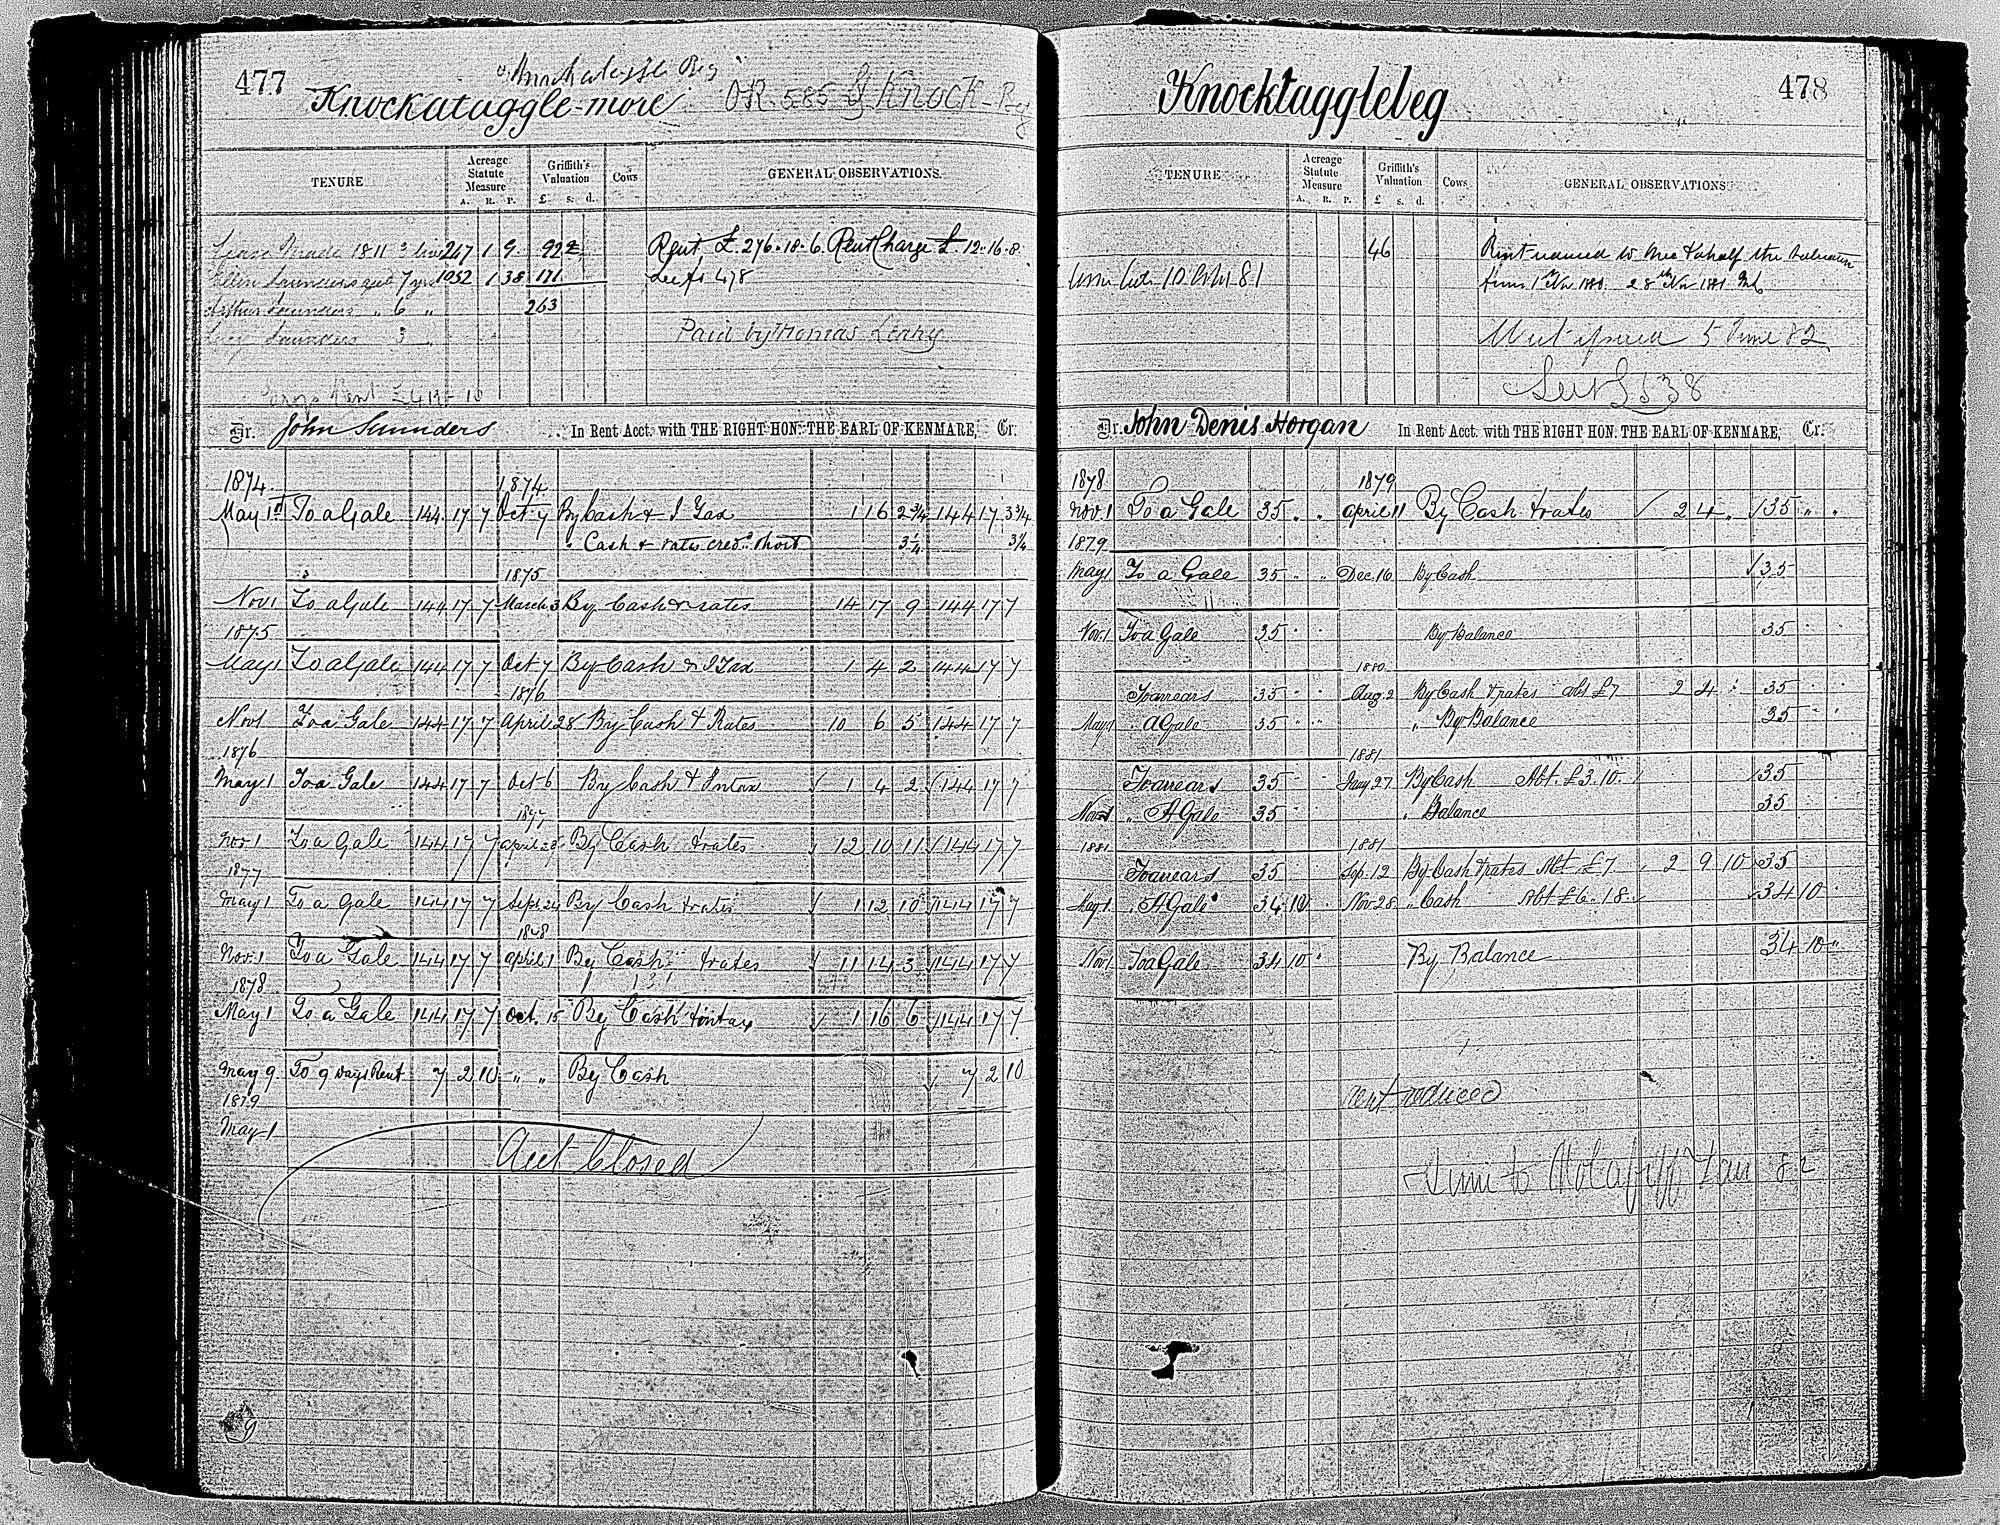 477
Knockataggle Beg
Knockataggle-more OR 585 Knock-Beg
TENURE Acreage Statute Measure A. R. P. Griffith's Valuation £ s. d. Cows GENERAL OBSERVATIONS.
Lease Made 1811 3 lives 247 1 9 92 Rent £276.18.6 Rent Charge £12.16.8
Ellen Saunders aged 7 yrs 1052 1 38 171 See fo 478
Arthur Saunders " 6 " 263
Lucy Saunders 3 " Paid by Thomas Leary
Rent £
Dr. John Saunders In Rent Acct. with THE RIGHT HON. THE EARL OF KENMARE, Cr.
1874 1874
May 1st To a Gale 144 17 7 Oct 7 By Cash & I Tax 1 16 2 3/4 144 17 3 3/4
" Cash & rates cred. short 3 1/4 3 1/4
1875
Nov 1 To a Gale 144 17 7 March 3 By Cash & rates 14 17 9 144 17 7
1875
May 1 To a Gale 144 17 7 Oct 7 By Cash & I Tax 1 4 2 144 17 7
1876
Nov 1 To a Gale 144 17 7 April 28 By Cash & Rates 10 6 5 144 17 7
1876
May 1 To a Gale 144 17 7 Oct 6 By Cash & Intax 1 4 2 144 17 7
1877
Nov 1 To a Gale 144 17 7 April 28 By Cash & rates 12 10 11 144 17 7
1877
May 1 To a Gale 144 17 7 Sept 24 By Cash & rates 1 12 10 144 17 7
1878
Nov. 1 To a Gale 144 17 7 April 1 By Cash & rates 11 14 3 144 17 7
1878
May 1 To a Gale 144 17 7 Oct. 15 By Cash & intax 1 16 6 144 17 7
May 9 To 9 Days Rent 7 2 10 " " By Cash 7 2 10
1879
May 1
Acct Closed
Knocktagglebeg 478
TENURE Acreage Statute Measure A. R. P. Griffith's Valuation £ s. d. Cows GENERAL OBSERVATIONS
46 Rent reduced to one & a half the Valuation
10 81 from 1st Nov 1880. 28th Nov 1881
Writ issued 5 June 82
538
Dr. John Denis Horgan In Rent Acct. with THE RIGHT HON. THE EARL OF KENMARE, Cr.
1878 1879
Nov. 1 To a Gale 35 " " April 11 By Cash & rates 2 4 " 35 " "
1879
May 1 To a Gale 35 " " Dec. 16 By Cash 35
Nov. 1 To a Gale 35 " " By Balance 35
1880
To arrears 35 " " Aug. 2 By Cash & rates abt £7 2 4 " 35 " "
May 1 " A Gale 35 " " " By Balance 35 " "
1881
To arrears 35 Jany 27 By Cash Abt. £3.10. 35
Nov 1 " A Gale 35 " Balance 35
1881 1881
To arrears 35 Sep. 12 By Cash & rates Abt £7 2 9 10 35
May 1 " A Gale 34 10 " Nov 28 " Cash Abt £6.18. 34 10
Nov. 1 To a Gale 34 10 " By Balance 34 10 "
rent reduced
82